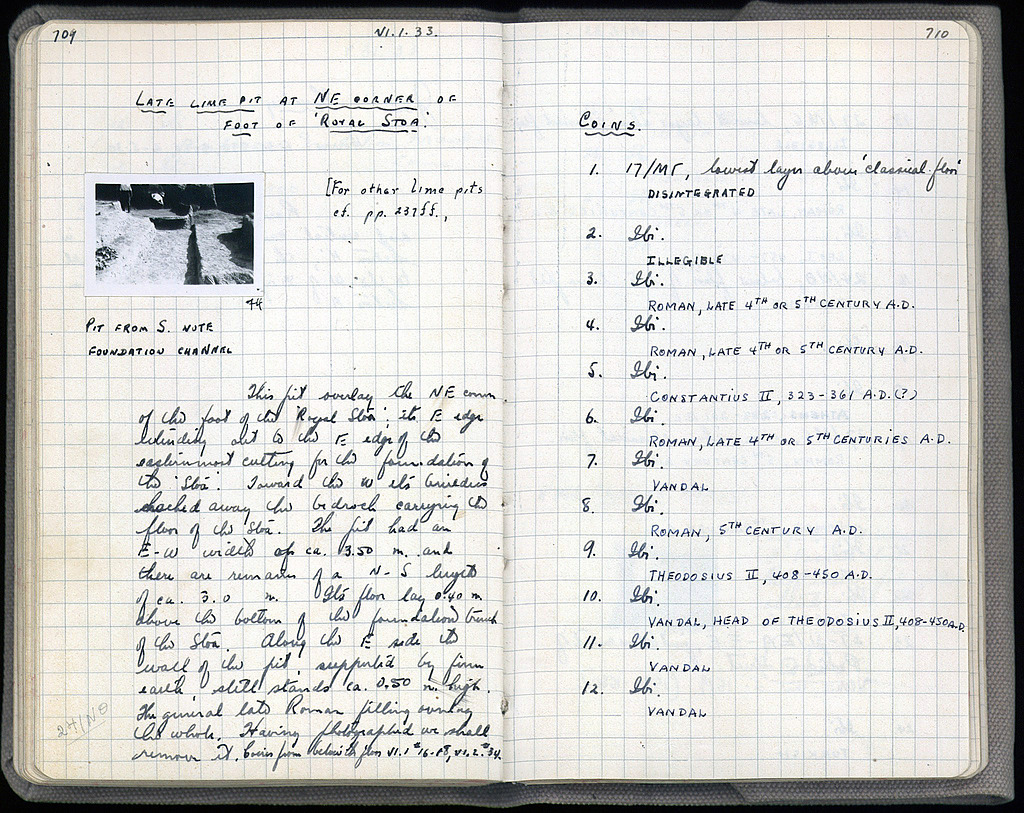 709
VI.1.33.
LATE LIME PIT AT NE CORNER OF
FOOT OF 'ROYAL STOA'.
[For other lime pits
cf. pp. 237ff.,
44
PIT FROM S. NOTE
FOUNDATION CHANNEL
This pit overlay the NE corner
of the foot of the 'Royal Stoa'; its E edge
extending out to the E edge of the
easternmost cutting for the foundation of
the 'Stoa'. Toward the W its builders
hacked away the bedrock carrying the
floor of the Stoa. The pit had an
E-W width of ca. 3.50 m. and
there are remains of a N-S length
of ca. 3.0 m. Its floor lay 0.40 m.
above the bottom of the foundation trench
of the Stoa. Along the E side its
wall of the pit, supported by firm
earth, still stands ca. 0.50 m. high.
The general late Roman filling overlay
the whole. Having photographed we shall
remove it. Coins from below its floor VI.1 #16-18, VI.2.#34.
241/ΝΘ
710
COINS.
1. 17/ΜΓ, lowest layer above 'classical floor'
DISINTEGRATED
2. Ibi.
ILLEGIBLE
3. Ibi.
ROMAN, LATE 4TH OR 5TH CENTURY A.D.
4. Ibi.
ROMAN, LATE 4TH OR 5TH CENTURY A.D.
5. Ibi.
CONSTANTIUS II, 323-361 A.D.(?)
6. Ibi.
ROMAN, LATE 4TH OR 5TH CENTURIES A.D.
7. Ibi.
VANDAL
8. Ibi.
ROMAN, 5TH CENTURY A.D.
9. Ibi.
THEODOSIUS II, 408-450 A.D.
10. Ibi.
VANDAL, HEAD OF THEODOSIUS II, 408-450 A.D.
11. Ibi.
VANDAL
12. Ibi.
VANDAL